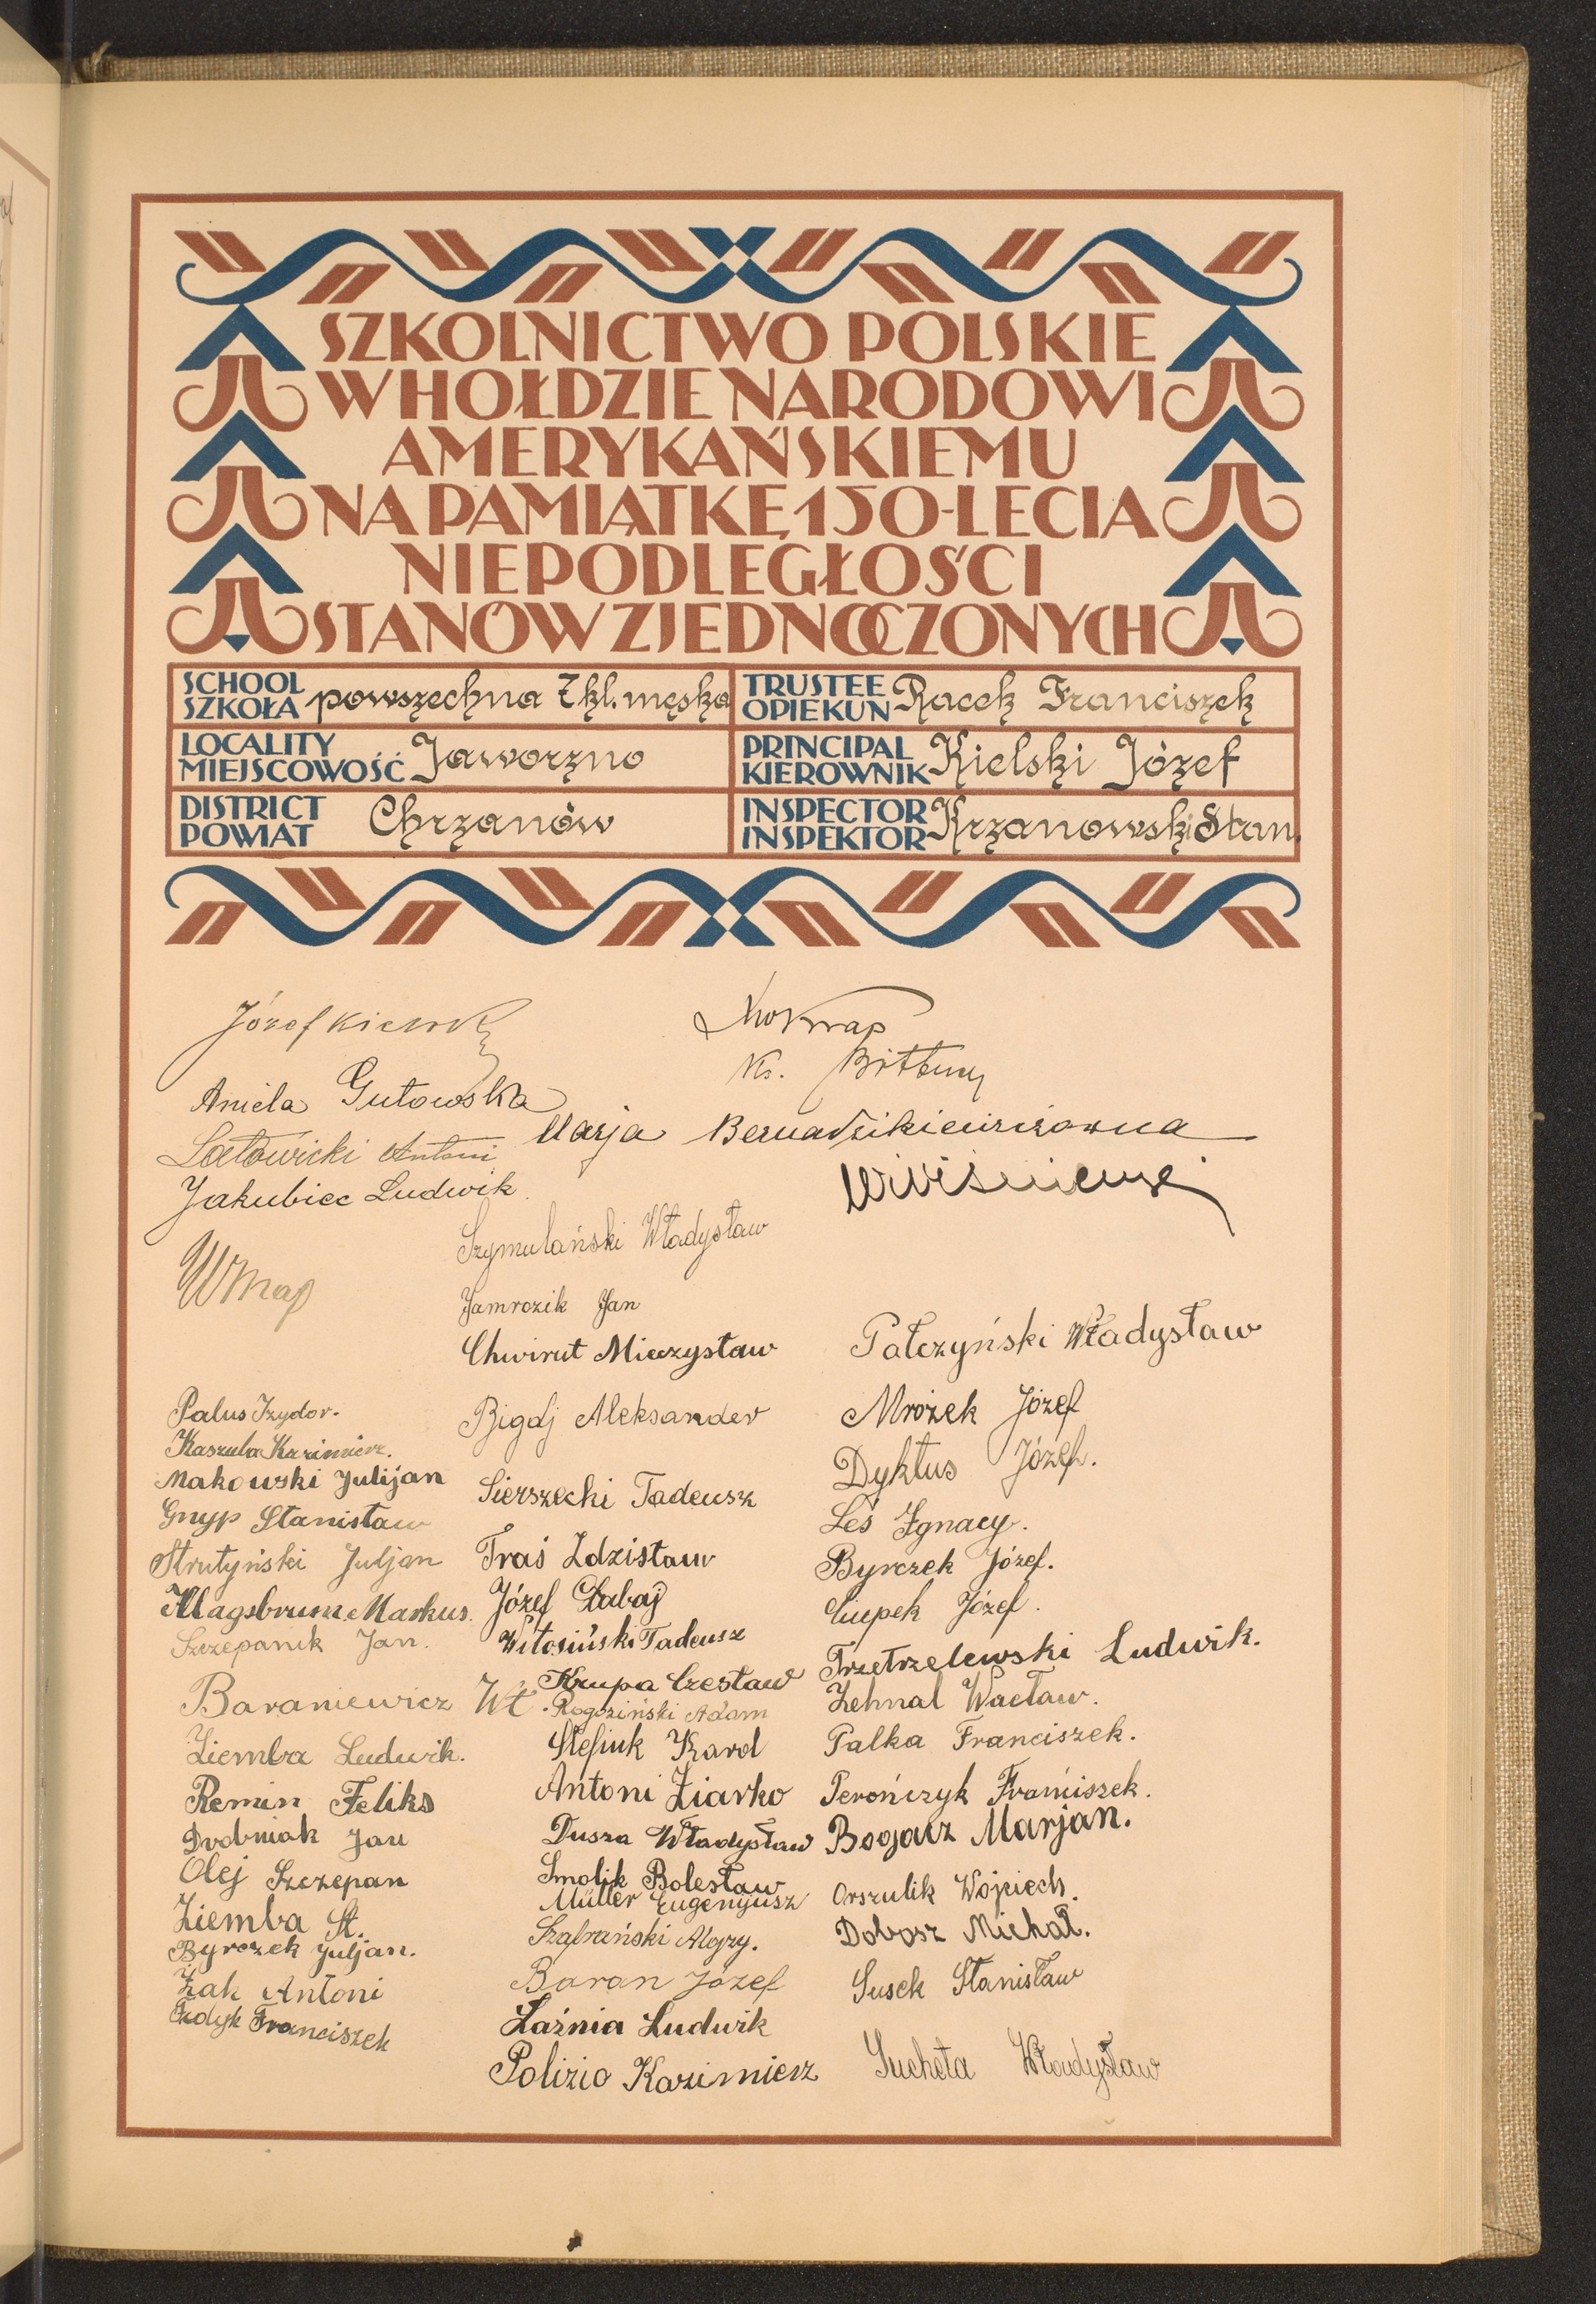 SZKOLNICTWO POLSKIE
W HOŁDZIE NARODOWI
AMERYKAŃSKIEMU
NA PAMIĄTKĘ 150-LECIA
NIEPODLEGŁOŚCI
STANÓW ZJEDNOCZONYCH
SCHOOL SZKOŁA powszechna 7 kl. męska
TRUSTEE OPIEKUN Racek Franciszek
LOCALITY MIEJSCOWOŚĆ Jaworzno
PRINCIPAL KIEROWNIK Kielski Józef
DISTRICT POWIAT Chrzanów
INSPECTOR INSPEKTOR Krzanowski Stan.
Józef
Ks.
Aniela Gutowska
Marja
Antoni
Jakubiec Ludwik
Szymulański Władysław
Jamrozik Jan
Chwirut Mieczysław
Bigaj Aleksander
Sierszecki Tadeusz
Traś Zdzisław
Józef Dubaj
Witosiński Tadeusz
Krupa Czesław
Rogoziński Adam
Stefiuk Karol
Antoni Ziarko
Dusza Władysław
Smolik Bolesław
Müller Eugenjusz
Szafrański Alojzy.
Baran Józef
Łaźnia Ludwik
Polizio Kazimierz
Palus Izydor.
Kaszula Kazimierz.
Makowski Julijan
Gnyp Stanisław
Strutyński Juljan
Klagsbrum Markus.
Szczepanik Jan.
Baraniewicz Wł.
Ziemba Ludwik.
Remin Feliks
Drobniak Jan
Olej Szczepan
Ziemba St.
Byrczek Juljan.
Żak Antoni
Franciszek
Pałczyński Władysław
Mrożek Józef
Dyktus Józef.
Leś Ignacy.
Byrczek Józef.
Ciupek Józef.
Trzetrzelewski Ludwik.
Zehnal Wacław.
Palka Franciszek.
Perończyk Franciszek.
Bogacz Marjan.
Orszulik Wojciech.
Dobosz Michał.
Susek Stanisław
Sucheta Władysław